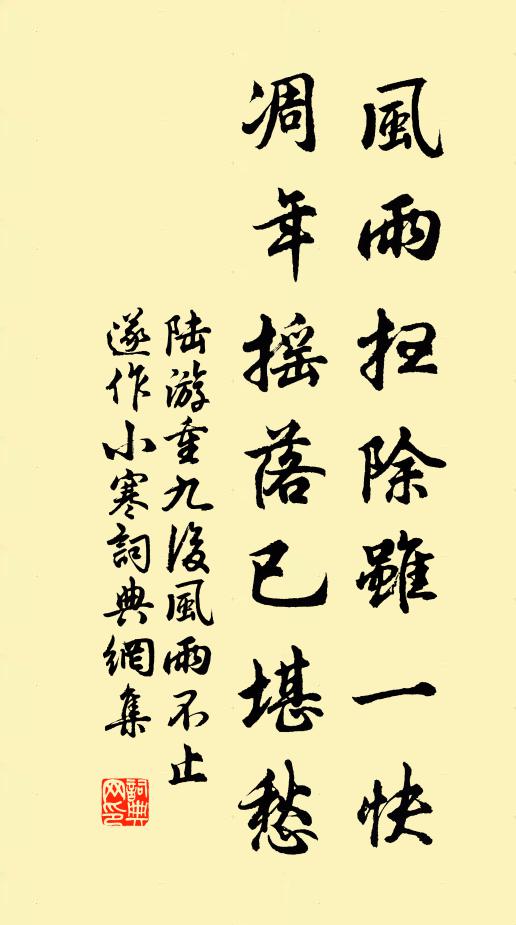 風雨扫除雖一快
凋年摇落已堪愁
陆游重九後風雨不止
遂作小寒詞典網集
詞典网印